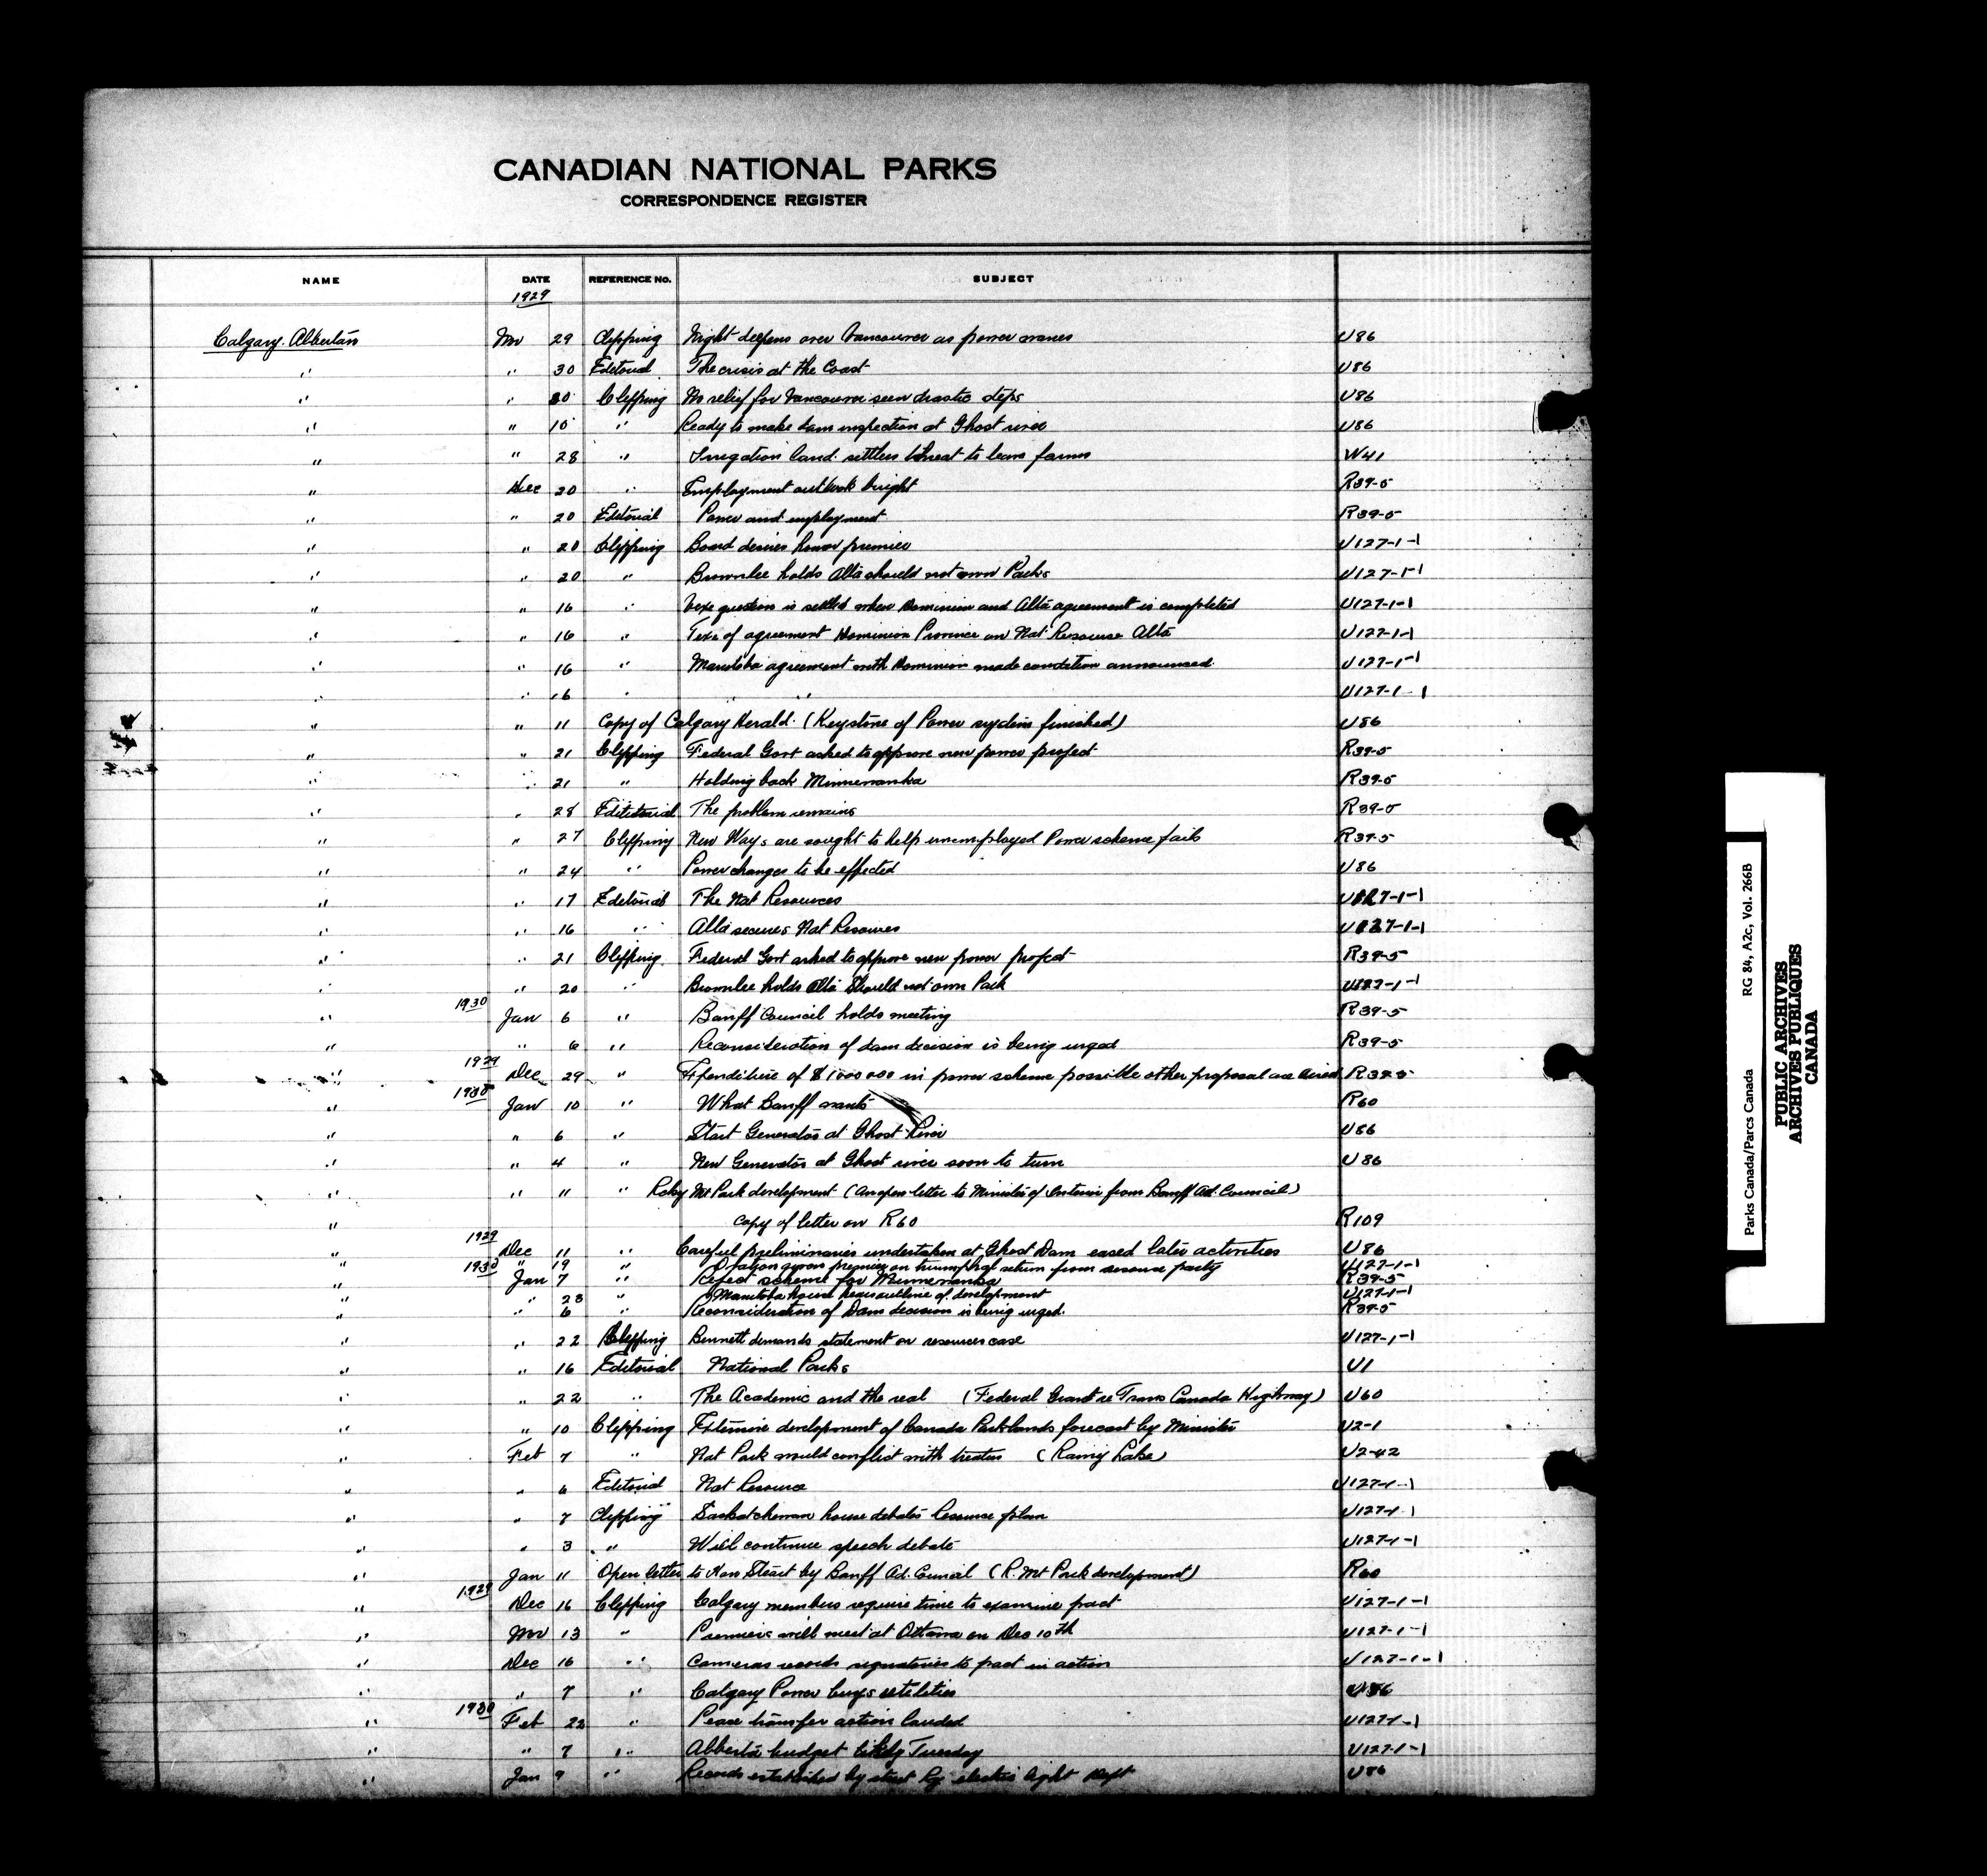 CANADIAN NATIONAL PARKS
CORRESPONDENCE REGISTER
NAME DATE REFERENCE No. SUBJECT
1929
Calgary Albertan Nov 29 Clipping Night deepens over Vancouver as power wanes U86
" " 30 Editorial The crisis at the Coast U86
" " 30 Clipping No relief for Vancouver seen drastic steps U86
" " 10 " Ready to make dam inspection at Ghost river U86
" " 28 " Irrigation land settlers threat to leave farms W41
" Dec 20 " Employment outlook bright R39-5
" " 20 Editorial Power and employment R39-5
" " 20 Clipping Board desires honor premier U127-1-1
" " 20 " Brownlee holds Alta should not own Parks U127-1-1
" " 16 " question is settled when Dominion and Alta agreement is completed U127-1-1
" " 16 " Text of agreement Dominion Province on Nat Resource Alta U127-1-1
" " 16 " Manitoba agreement with Dominion made announced U127-1-1
" " 16 " " " U127-1-1
" " 11 Copy of Calgary Herald. (Keystone of Power system finished) U86
" " 21 Clipping Federal Govt asked to approve new power project R39-5
" " 21 " Holding back Minnewanka R39-5
" " 28 Edititorial The problem remains R39-5
" " 27 Clipping New Ways are sought to help unemployed Power scheme fails R39-5
" " 24 " Power changes to be effected U86
" " 17 Editorial The Nat Resources U127-1-1
" " 16 " Alta secures Nat Resources U127-1-1
" " 21 Clipping Federal Govt asked to approve new power project R39-5
" " 20 " Brownlee holds Alta Should not own Park U127-1-1
" 1930 Jan 6 " Banff Council holds meeting R39-5
" " 6 " Reconsideration of dam decision is being urged R39-5
" 1929 Dec 29 " Expenditure of $1000000 in power scheme possible other proposal are R39-5
" 1930 Jan 10 " What Banff wants R60
" " 6 " Start Generator at Ghost River U86
" " 4 " New Generator at Ghost river soon to turn U86
" " 11 " Rcky Mt Park development (An open letter to Minister of Interior from Banff Ad. Council)
" copy of letter on R60 R109
" 1929 Dec 11 " Careful preliminaries undertaken at Ghost Dam eased later activities U86
" " 19 " Ovation given premier on triumphal return from resource party U127-1-1
" 1930 Jan 7 " Reject scheme for Minnewanka R39-5
" " 23 " Manitoba house hears outline of development U127-1-1
" " 6 " Reconsideration of Dam decision is being urged. R39-5
" " 22 Clipping Bennett demands statement on resources case U127-1-1
" " 16 Editorial National Parks U1
" " 22 " The Academic and the real (Federal Grant re Trans Canada Highway) U60
" " 10 Clipping Extensive development of Canada Parklands forecast by Minister U2-1
" Feb 7 " Nat Park would conflict with treaties (Rainy Lake) U2-42
" " 6 Editorial Nat Resource U127-1-1
" " 7 Clipping Saskatchewan house debates Resource plan U127-1-1
" " 3 " Will continue speech debate U127-1-1
" Jan 11 Open letter to Hon Steart by Banff Ad. Council (R. Mt Park development) R60
" 1929 Dec 16 Clipping Calgary members require time to examine pact U127-1-1
" Nov 13 " Premiers will meet at Ottawa on Dec 10th U127-1-1
" Dec 16 " Cameras records signatories to pact in action U127-1-1
" " 7 " Calgary Power buys utilities U86
" 1930 Feb 22 " Peace transfer action lauded U127-1-1
" " 7 " Alberta budget likely Tuesday U127-1-1
" Jan 9 " Records established by electric light Dept U86
Parks Canada/Parcs Canada RG 84, A2c, Vol. 266B
PUBLIC ARCHIVES
ARCHIVES PUBLIQUES
CANADA